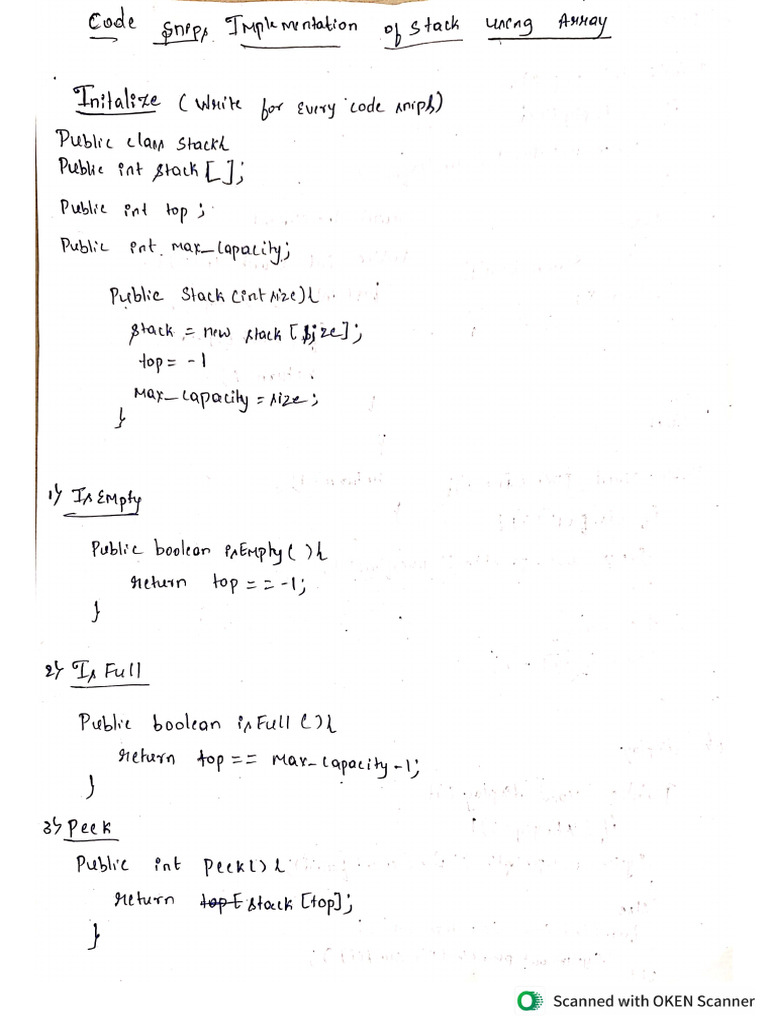 Code Snipp Implementation of Stack using Array
Initalize (Write for every code snipp)
Public class Stack{
Public int Stack [];
Public int top;
Public int max_capacity;
Public Stack (int size){
Stack = new stack [Size];
top = -1
Max_capacity = size;
}
1) IsEmpty
Public boolean isEmpty( ){
return top == -1;
}
2) Is Full
Public boolean isFull (){
return top == Max_capacity -1;
}
3) Peek
Public int Peek(){
return top[ Stack [top];
}
Scanned with OKEN Scanner